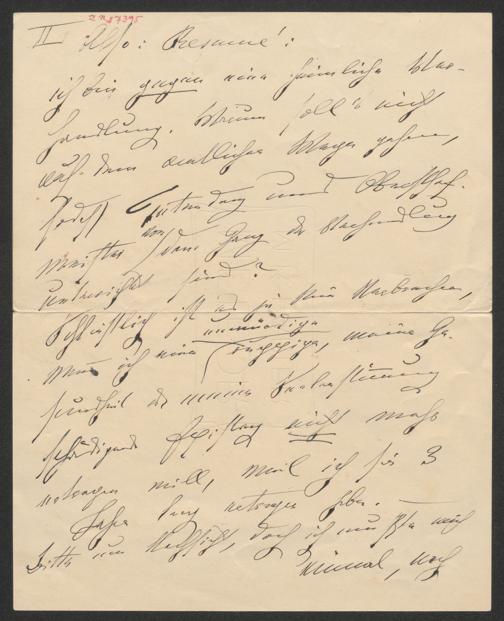 II Also: Resumé:
ich bin gegen eine heimliche Ver-
handlung. Warum soll's nicht
auf dem amtlichen Wege gehen,
und Obersthof-
meister von dem Gang der Verhandlung
unterrichtet sind?
Schließlich ist es ja kein Verbrechen,
wenn ich eine unwürdige, meine Ge-
sundheit und meine
schädigende nicht mehr
ertragen will, weil ich sie 3
Jahre lang ertragen habe. —
Bitte um Nachsicht, doch ich mußte mich
einmal, noch